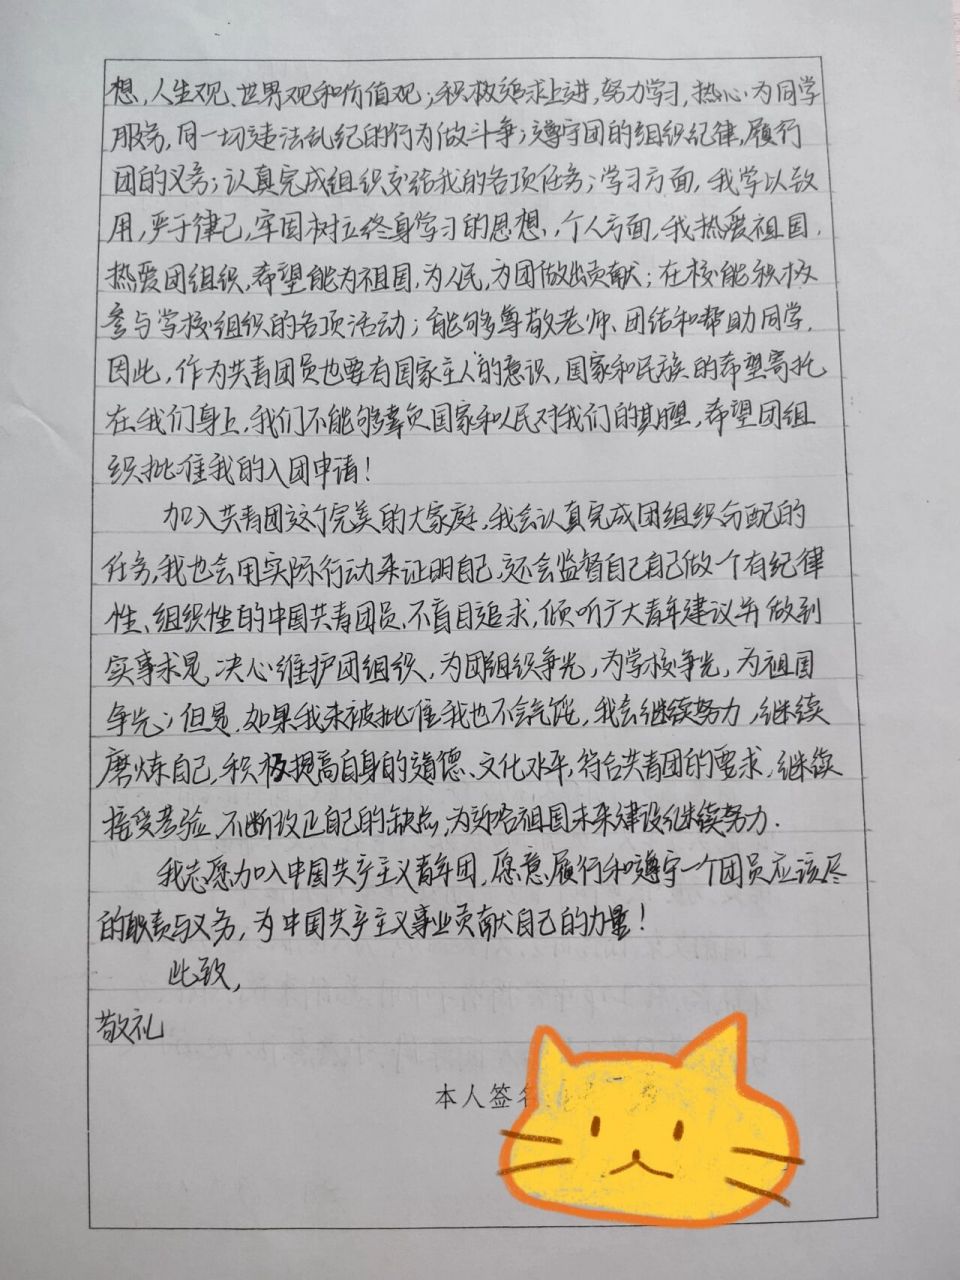 想,人生观、世界观和价值观;积极追求上进,努力学习,热心为同学
服务,同一切违法乱纪的行为做斗争;遵守团的组织纪律,履行
团的义务;认真完成组织交给我的各项任务;学习方面,我学以致
用,严于律己,牢固树立终身学习的思想、个人方面,我热爱祖国,
热爱团组织,希望能为祖国,为人民,为团做出贡献;在校能积极
参与学校组织的各项活动;能够尊敬老师、团结和帮助同学,
因此,作为共青团员也要有国家主人的意识,国家和民族的希望寄托
在我们身上,我们不能够辜负国家和人民对我们的期望,希望团组
织批准我的入团申请!
加入共青团这个完美的大家庭,我会认真完成团组织分配的
任务,我也会用实际行动来证明自己,还会监督自己自己做一个有纪律
性、组织性的中国共青团员、不盲目追求,倾听广大青年建议并做到
实事求是,决心维护团组织、为团组织争光,为学校争光,为祖国
争光;但是,如果我未被批准我也不会气馁,我会继续努力,继续
磨炼自己,积极提高自身的道德、文化水平,符合共青团的要求,继续
接受考验,不断改正自己的缺点,为祖国未来建设继续努力.
我志愿加入中国共产主义青年团,愿意履行和遵守一个团员应该尽
的职责与义务,为中国共产主义事业贡献自己的力量!
此致,
敬礼
本人签名